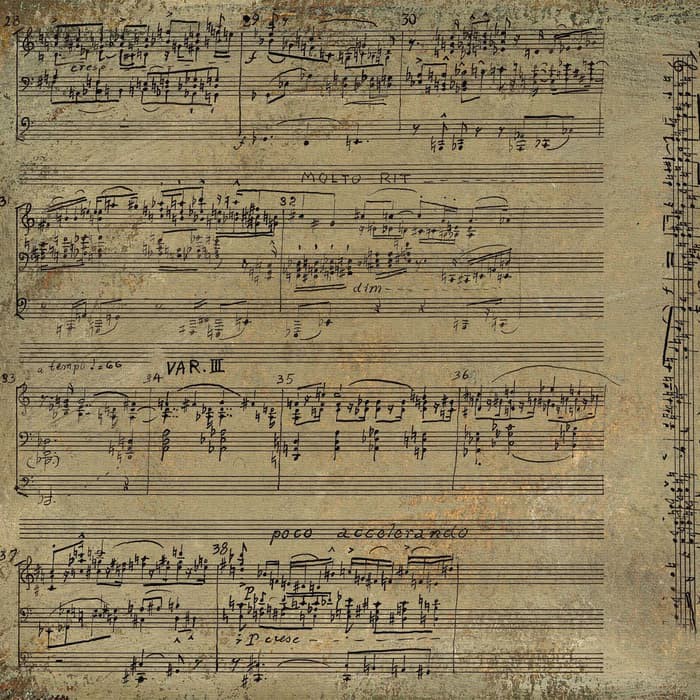 28 29 30
f
cresc
f
MOLTO RIT
32
dim
a tempo ♩=66 VAR. III
33 34 35 36
poco accolorando
37 38
P
P cresc